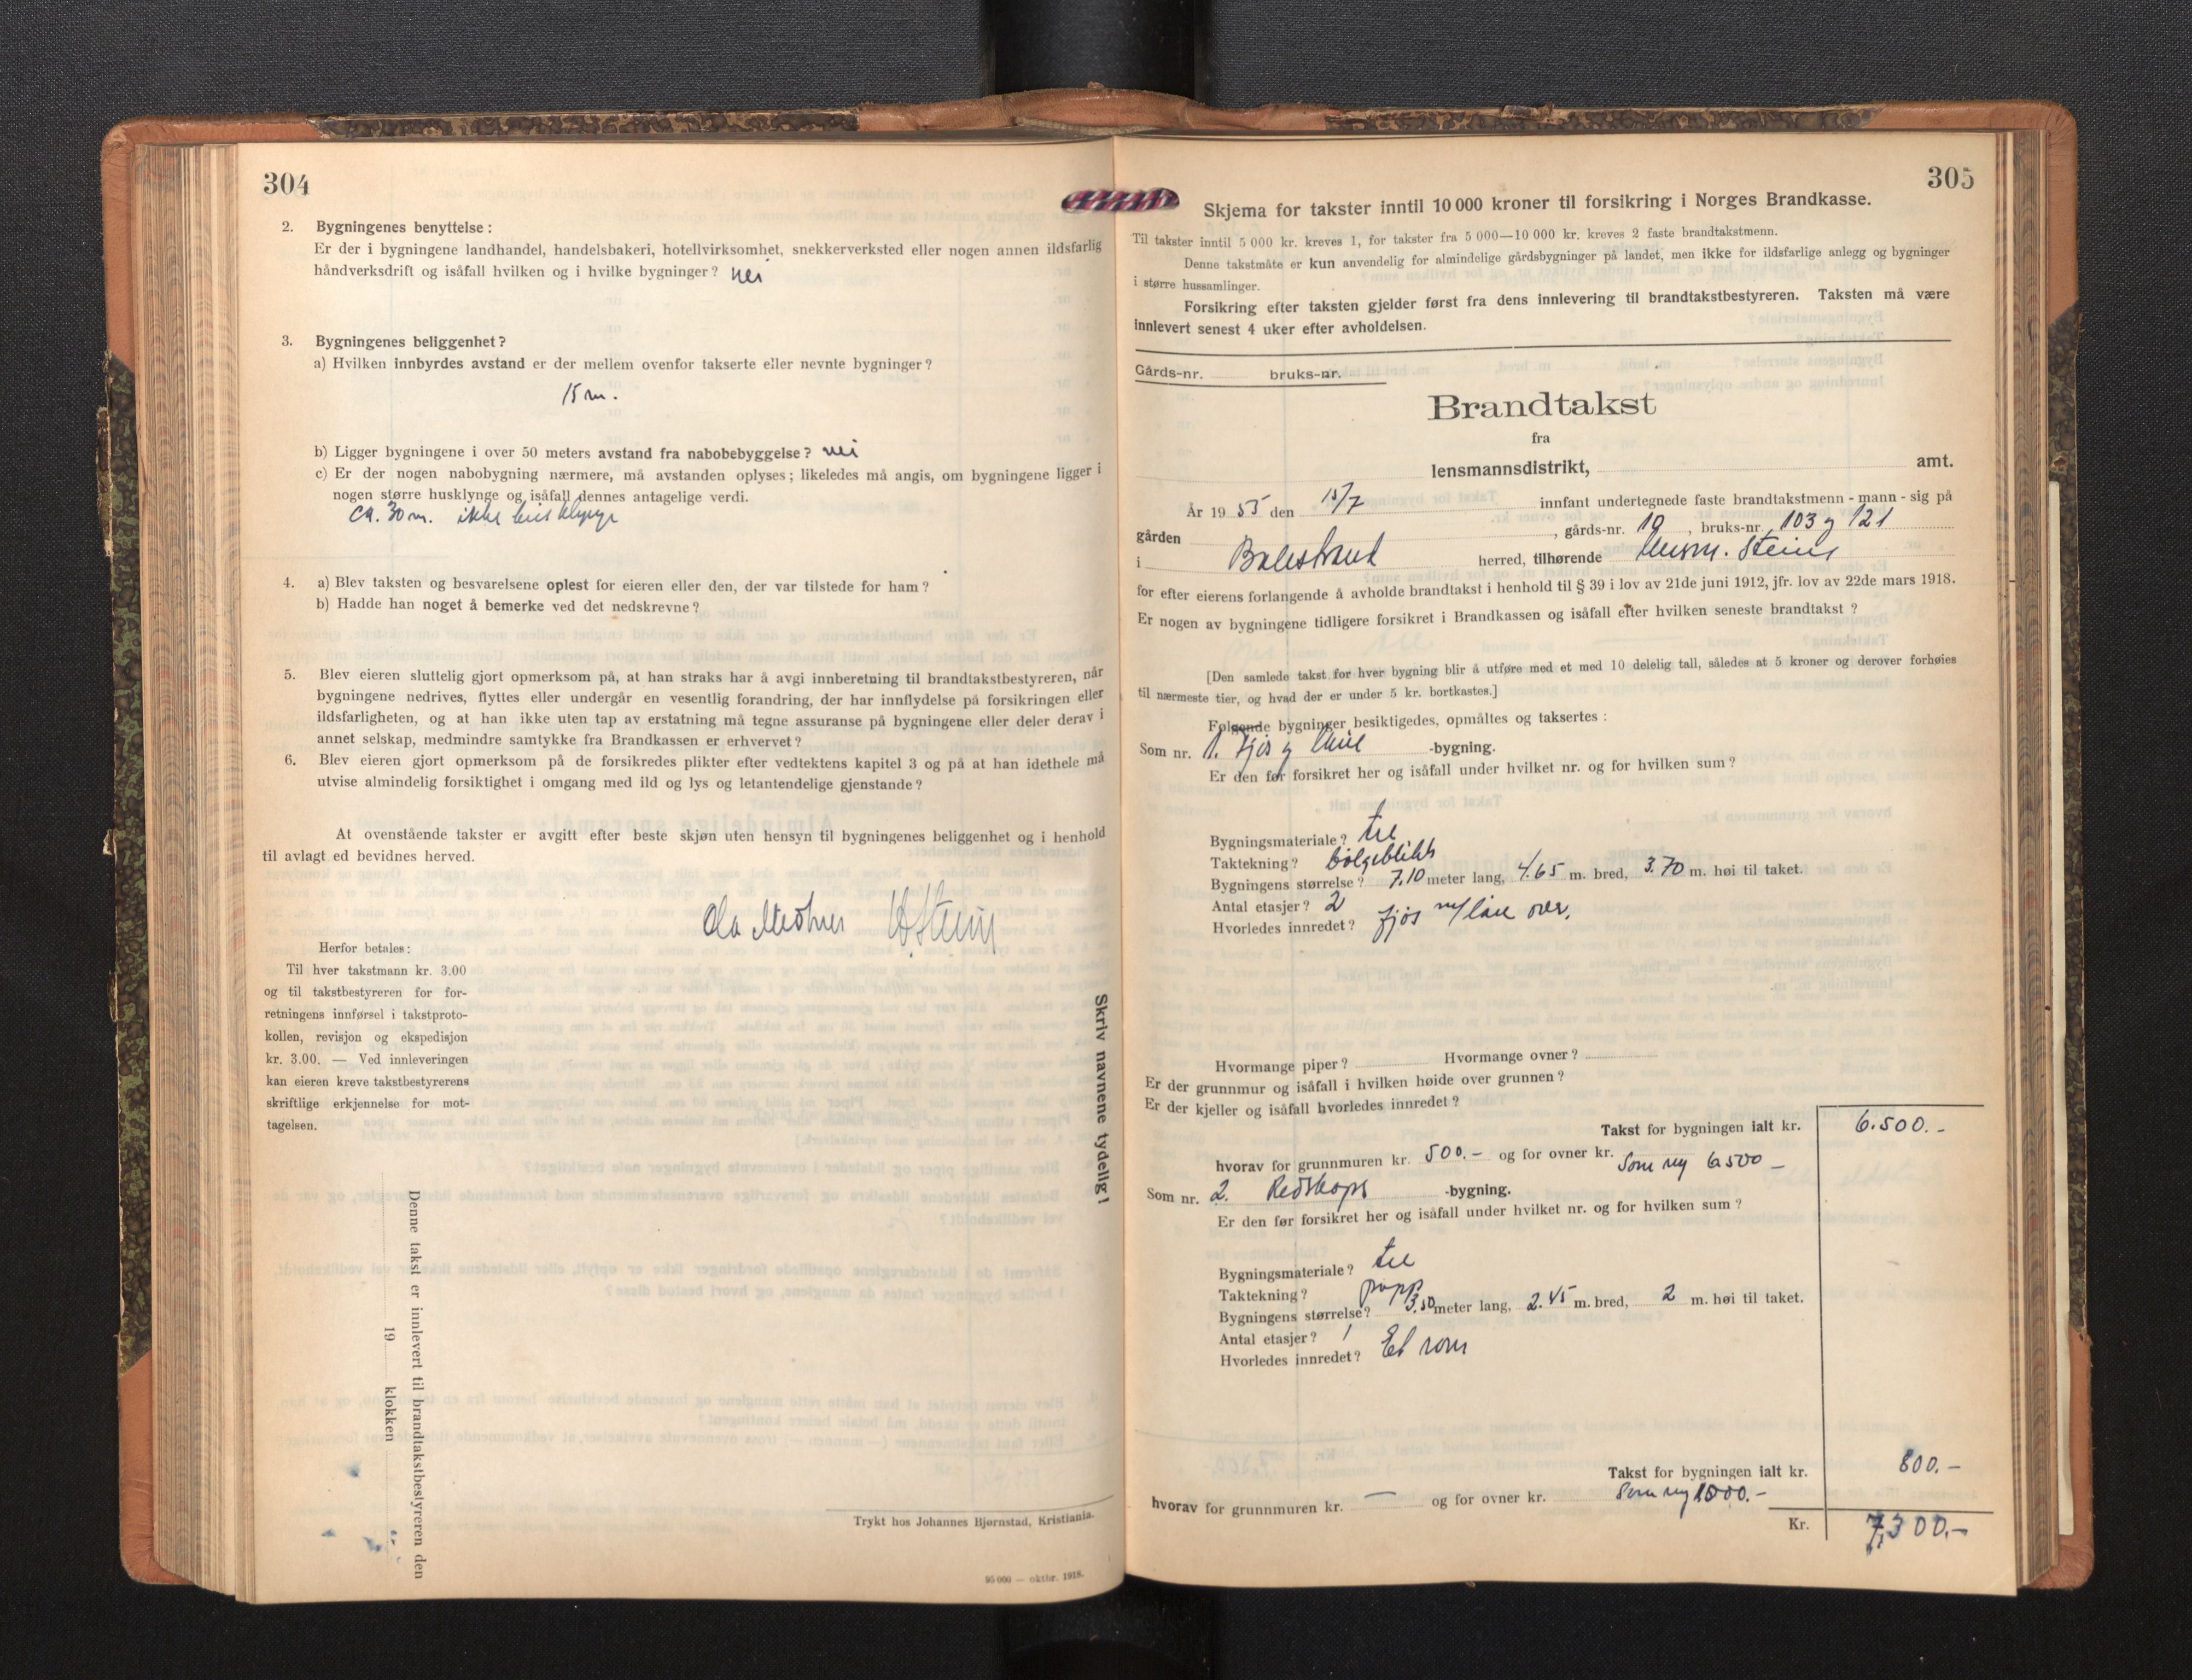 304
2. Bygningenes benyttelse:
Er der i bygningene landhandel, handelsbakeri, hotellvirksomhet, snekkerverksted eller nogen annen ildsfarlig
håndverksdrift og isåfall hvilken og i hvilke bygninger? nei
3. Bygningenes beliggenhet?
a) Hvilken innbyrdes avstand er der mellem ovenfor takserte eller nevnte bygninger?
15 m.
b) Ligger bygningene i over 50 meters avstand fra nabobebyggelse? nei
c) Er der nogen nabobygning nærmere, må avstanden oplyses; likeledes må angis, om bygningene ligger i
nogen større husklynge og isåfall dennes antagelige verdi.
ca. 30 m. ikke husklynge
4. a) Blev taksten og besvarelsene oplest for eieren eller den, der var tilstede for ham?
b) Hadde han noget å bemerke ved det nedskrevne?
5. Blev eieren sluttelig gjort opmerksom på, at han straks har å avgi innberetning til brandtakstbestyreren, når
bygningene nedrives, flyttes eller undergår en vesentlig forandring, der har innflydelse på forsikringen eller
ildsfarligheten, og at han ikke uten tap av erstatning må tegne assuranse på bygningene eller deler derav i
annet selskap, medmindre samtykke fra Brandkassen er erhvervet?
6. Blev eieren gjort opmerksom på de forsikredes plikter efter vedtektens kapitel 3 og på at han idethele må
utvise almindelig forsiktighet i omgang med ild og lys og letantendelige gjenstande?
At ovenstående takster er avgitt efter beste skjøn uten hensyn til bygningenes beliggenhet og i henhold
til avlagt ed bevidnes herved.
Herfor betales:
Til hver takstmann kr. 3.00
og til takstbestyreren for for-
retningens innførsel i takstproto-
kollen, revisjon og ekspedisjon
kr. 3.00. — Ved innleveringen
kan eieren kreve takstbestyrerens
skriftlige erkjennelse for mot-
tagelsen.
Skriv navnene tydelig!
Denne takst er innlevert til brandtakstbestyreren den
19 klokken
Trykt hos Johannes Bjørnstad, Kristiania.
95 000 — oktbr. 1918.
305
Skjema for takster inntil 10 000 kroner til forsikring i Norges Brandkasse.
Til takster inntil 5 000 kr. kreves 1, for takster fra 5 000—10 000 kr. kreves 2 faste brandtakstmenn.
Denne takstmåte er kun anvendelig for almindelige gårdsbygninger på landet, men ikke for ildsfarlige anlegg og bygninger
i større hussamlinger.
Forsikring efter taksten gjelder først fra dens innlevering til brandtakstbestyreren. Taksten må være
innlevert senest 4 uker efter avholdelsen.
Gårds-nr. bruks-nr.
Brandtakst
fra
lensmannsdistrikt, amt.
År 1953 den 15/7 innfant undertegnede faste brandtakstmenn - mann - sig på
gården , gårds-nr. 10, bruks-nr. 103 og 121
i Balestrand herred, tilhørende Steins
for efter eierens forlangende å avholde brandtakst i henhold til § 39 i lov av 21de juni 1912, jfr. lov av 22de mars 1918.
Er nogen av bygningene tidligere forsikret i Brandkassen og isåfall efter hvilken seneste brandtakst?
[Den samlede takst for hver bygning blir å utføre med et med 10 delelig tall, således at 5 kroner og derover forhøies
til nærmeste tier, og hvad der er under 5 kr. bortkastes.]
Følgende bygninger besiktigedes, opmåltes og taksertes:
Som nr. 1. Fjøs og løe -bygning.
Er den før forsikret her og isåfall under hvilket nr. og for hvilken sum?
Bygningsmateriale? tre
Taktekning? bølgeblikk
Bygningens størrelse? 7.10 meter lang, 4.65 m. bred, 3.70 m. høi til taket.
Antal etasjer? 2
Hvorledes innredet? fjøs m/løe over.
Hvormange piper? Hvormange ovner?
Er der grunnmur og isåfall i hvilken høide over grunnen?
Er der kjeller og isåfall hvorledes innredet?
Takst for bygningen ialt kr. 6.500.-
hvorav for grunnmuren kr. 500.- og for ovner kr. Som ny 6500 -
Som nr. 2. Redskaps -bygning.
Er den før forsikret her og isåfall under hvilket nr. og for hvilken sum?
Bygningsmateriale? tre
Taktekning? papp
Bygningens størrelse? 3.50 meter lang, 2.45 m. bred, 2 m. høi til taket.
Antal etasjer? 1
Hvorledes innredet? Et rom
Takst for bygningen ialt kr. 800.-
hvorav for grunnmuren kr. — og for ovner kr. Som ny 1000.-
Kr. 7.300.-